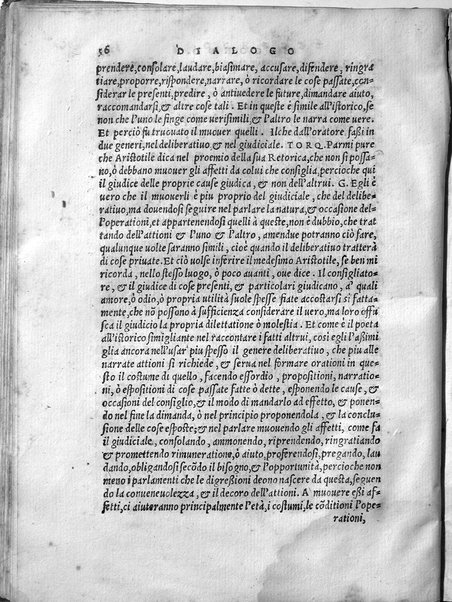 56 DIALOGO
prendere, consolare, laudare, biasimare, accusare, difendere, ringra
tiare, proporre, rispondere, narrare, ò ricordare le cose passate, con-
siderar le presenti, predire, ò antiuedere le future, dimandare aiuto,
raccomandarsi, & altre cose tali. Et in queste è simile all'istorico, se
non che l'uno le finge come uerisimili, & l'altro le narra come uere.
Et perciò fu trouato il muouer quelli. Ilche dall'oratore fassi in
due generi, nel deliberatiuo, & nel giudiciale. TORQ. Parmi pure
che Aristotile dica nel proemio della sua Retorica, che non si possa-
no, ò debbano muouer gli affetti da colui che consiglia, percioche qui
il giudice delle proprie cause giudica, & non dell'altrui. G. Egli è
uero che il muouerli è piu proprio del giudiciale, che del delibe-
ratiuo, ma douendosi seguire nel parlare la natura, & occasione del-
l'operationi, et appartenendosi quelli à queste, non è dubbio, che trat
tando dell'attioni & l'uno & l'altro, amendue potranno ciò fare,
qualunque uolte saranno simili, cioè quando il deliberatiuo tratterà
di cose priuate. Et ciò uolse inferire il medesimo Aristotile, se ben mi
ricorda, nello stesso luogo, ò poco auanti, oue dice. Il consigliato-
re, & il giudice di cose presenti, & particolari giudicano, a' quali
amore, ò odio, ò propria utilità suole spesse fiate accostarsi si fatta-
mente, che nō possono à sufficienza considerare il uero, ma loro offu
sca il giudicio la propria dilettatione ò molestia. Et come è il poeta
all'istorico simigliante nel raccontare i fatti altrui, cosi egli l'assimi
glia ancora nell'usar piu spesso il genere deliberatiuo, che piu alle
narrate attioni si richiede, & serua nel formare orationi in que-
sto il costume di quello, facendo essordio, propositioni, narratio-
ni, ò espositioni di cose passate fatte ò dette, esponendo le cause, &
occasioni del consiglio, & il modo di mandarlo ad effetto, & ponen-
do nel fine la dimanda, ò nel principio proponendola, & la conclu-
sione delle cose esposte; & nel parlare muouendo gli affetti, come fa
il giudiciale, consolando, ammonendo, riprendendo, ringratiando
& promettendo rimuneratione, ò aiuto, proferendosi, pregando, lau
dando, obligandosi secōdo il bisogno, & l'opportunità, percioche non
meno i parlamenti che le digressioni deono nascere da questa, seguen
do la conueneuolezza, & il decoro dell'attioni. A muouere essi af-
fetti, ci aiuteranno principalmente l'età, i costumi, le cōditioni l'ope-
rationi,